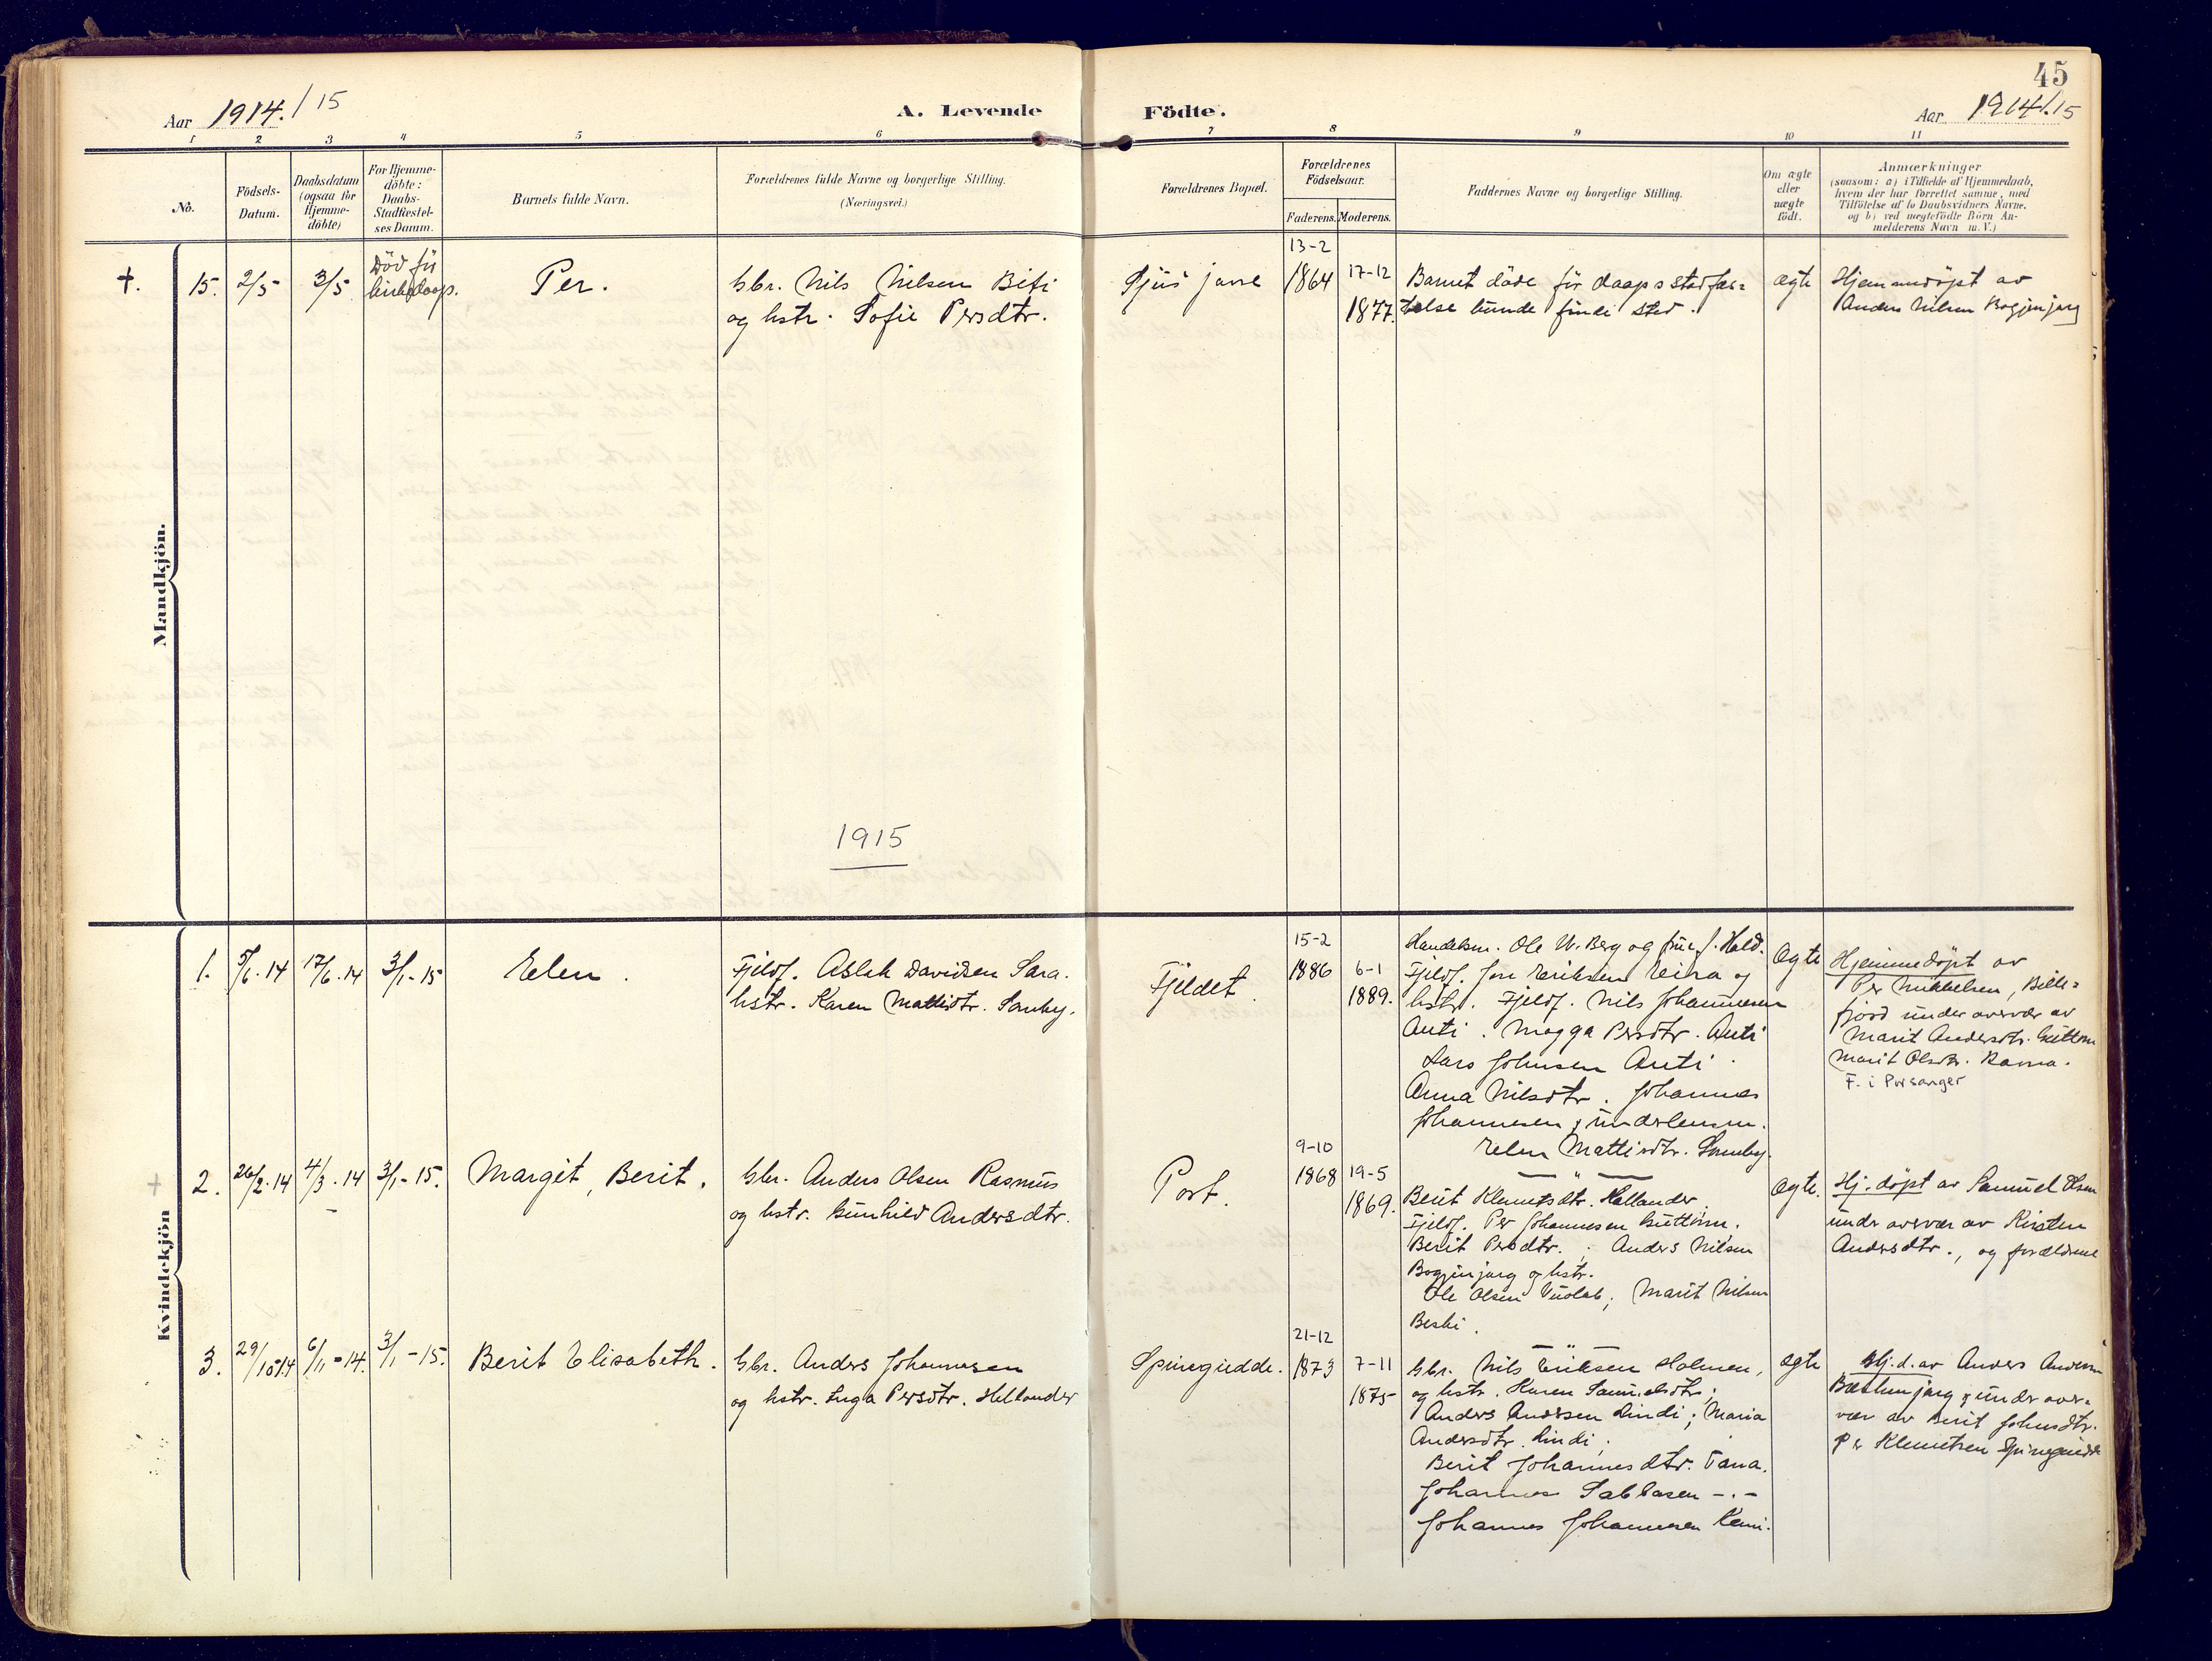 45
Aar 1914./15
A. Levende Födte.
Aar 1914/.15
1 2 3 4 5 6 7 8 9 10 11
No.
Födsels-
Datum.
Daabsdatum
(ogsaa for
Hjemme-
döbte)
For Hjemme-
döbte:
Daabs-
Stadfæstel-
ses Datum.
Barnets fulde Navn.
Forældrenes fulde Navne og borgerlige Stilling.
(Næringsvei.)
Forældrenes Bopæl.
Forældrenes
Födselsaar.
Faderens.
Moderens.
Faddernes Navne og borgerlige Stilling.
Om ægte
eller
uægte
født.
Anmærkninger
(saasom: a) i Tilfælde af Hjemmedaab,
hvem der har forrettet samme, med
Tilföielse af to Daabsvidners Navne,
og b) ved uægtefödte Börn An-
melderens Navn m. V.)
Mandkjön.
†. 15. 2/5 3/5
Död för
kirkedaap.
Per.
Gbr. Nils Nilsen Biti
og hstr. Sofie Persdtr.
13-2
1864
17-12
1877.
Barnet döde för daapsstadfæs=
telse kunde finde sted.
ægte
Hjemmedøpt av
Anders Nilsen Bogjenjarg
1915
Kvindekjön
1. 5/6.14 17/6.14 3/1-15
Elen.
Fjeldf. Aslak Davidsen Sara.
hstr. Karen Mattisdtr. Somby.
Fjeldet.
15-2
1886
6-1
1889.
Handelsm. Ole W. Berg og frue f. Hald.
Fjeldf. Jon Eriksen Eira og
hstr. Fjeldf. Nils Johannesen
Anti. Magga Persdtr. Anti
Lars Johnsen Anti.
Anna Nilsdtr. Johannes
Johannesen, underlensm.
Elen Mattisdtr. Somby.
Ægte
Hjemmedøpt av
Per Mikkelsen, Bille=
fjord under overvær av
Marit Andersdtr. Guttorm
Marit Olsdtr. Banna.
F. i Porsanger
2. 26/2.14 4/3.14 3/1-15.
Margit, Berit.
Gbr. Anders Olsen Rasmus
og hstr. Gunhild Andersdtr.
Port.
9-10
1868
19-5
1869.
— " —
Berit Klemetsdtr. Hallander
Fjeldf. Per Johannesen Guttorm.
Berit Persdtr.; Anders Nilsen
Bogjenjarg og hstr.
Ole Olsen Vuolab; Marit Nilsen
Beski.
Ægte.
Hj. døpt av Samuel Olsen
under overvær av Kirsten
Andersdtr., og forældrene
3. 29/10.14 6/11-14. 3/1-15.
Berit Elisabeth.
Gbr. Anders Johannesen
og hstr. Inga Persdtr. Hellander
Spinegudde.
21-12
1873
7-11
1875
— " —
Gbr. Nils Eriksen Holmen,
og hstr. Karen Samuelsdtr;
Anders Andersen Lindi; Maria
Andersdtr. Lindi;
Berit Johannesdtr. Tana.
Johannes -.-
Johannes Johannesen Kemi.
Ægte
Hj.d. av Anders Andersen
under over=
vær av Berit Johnsdtr.
Per Klemetsen Spinegudde